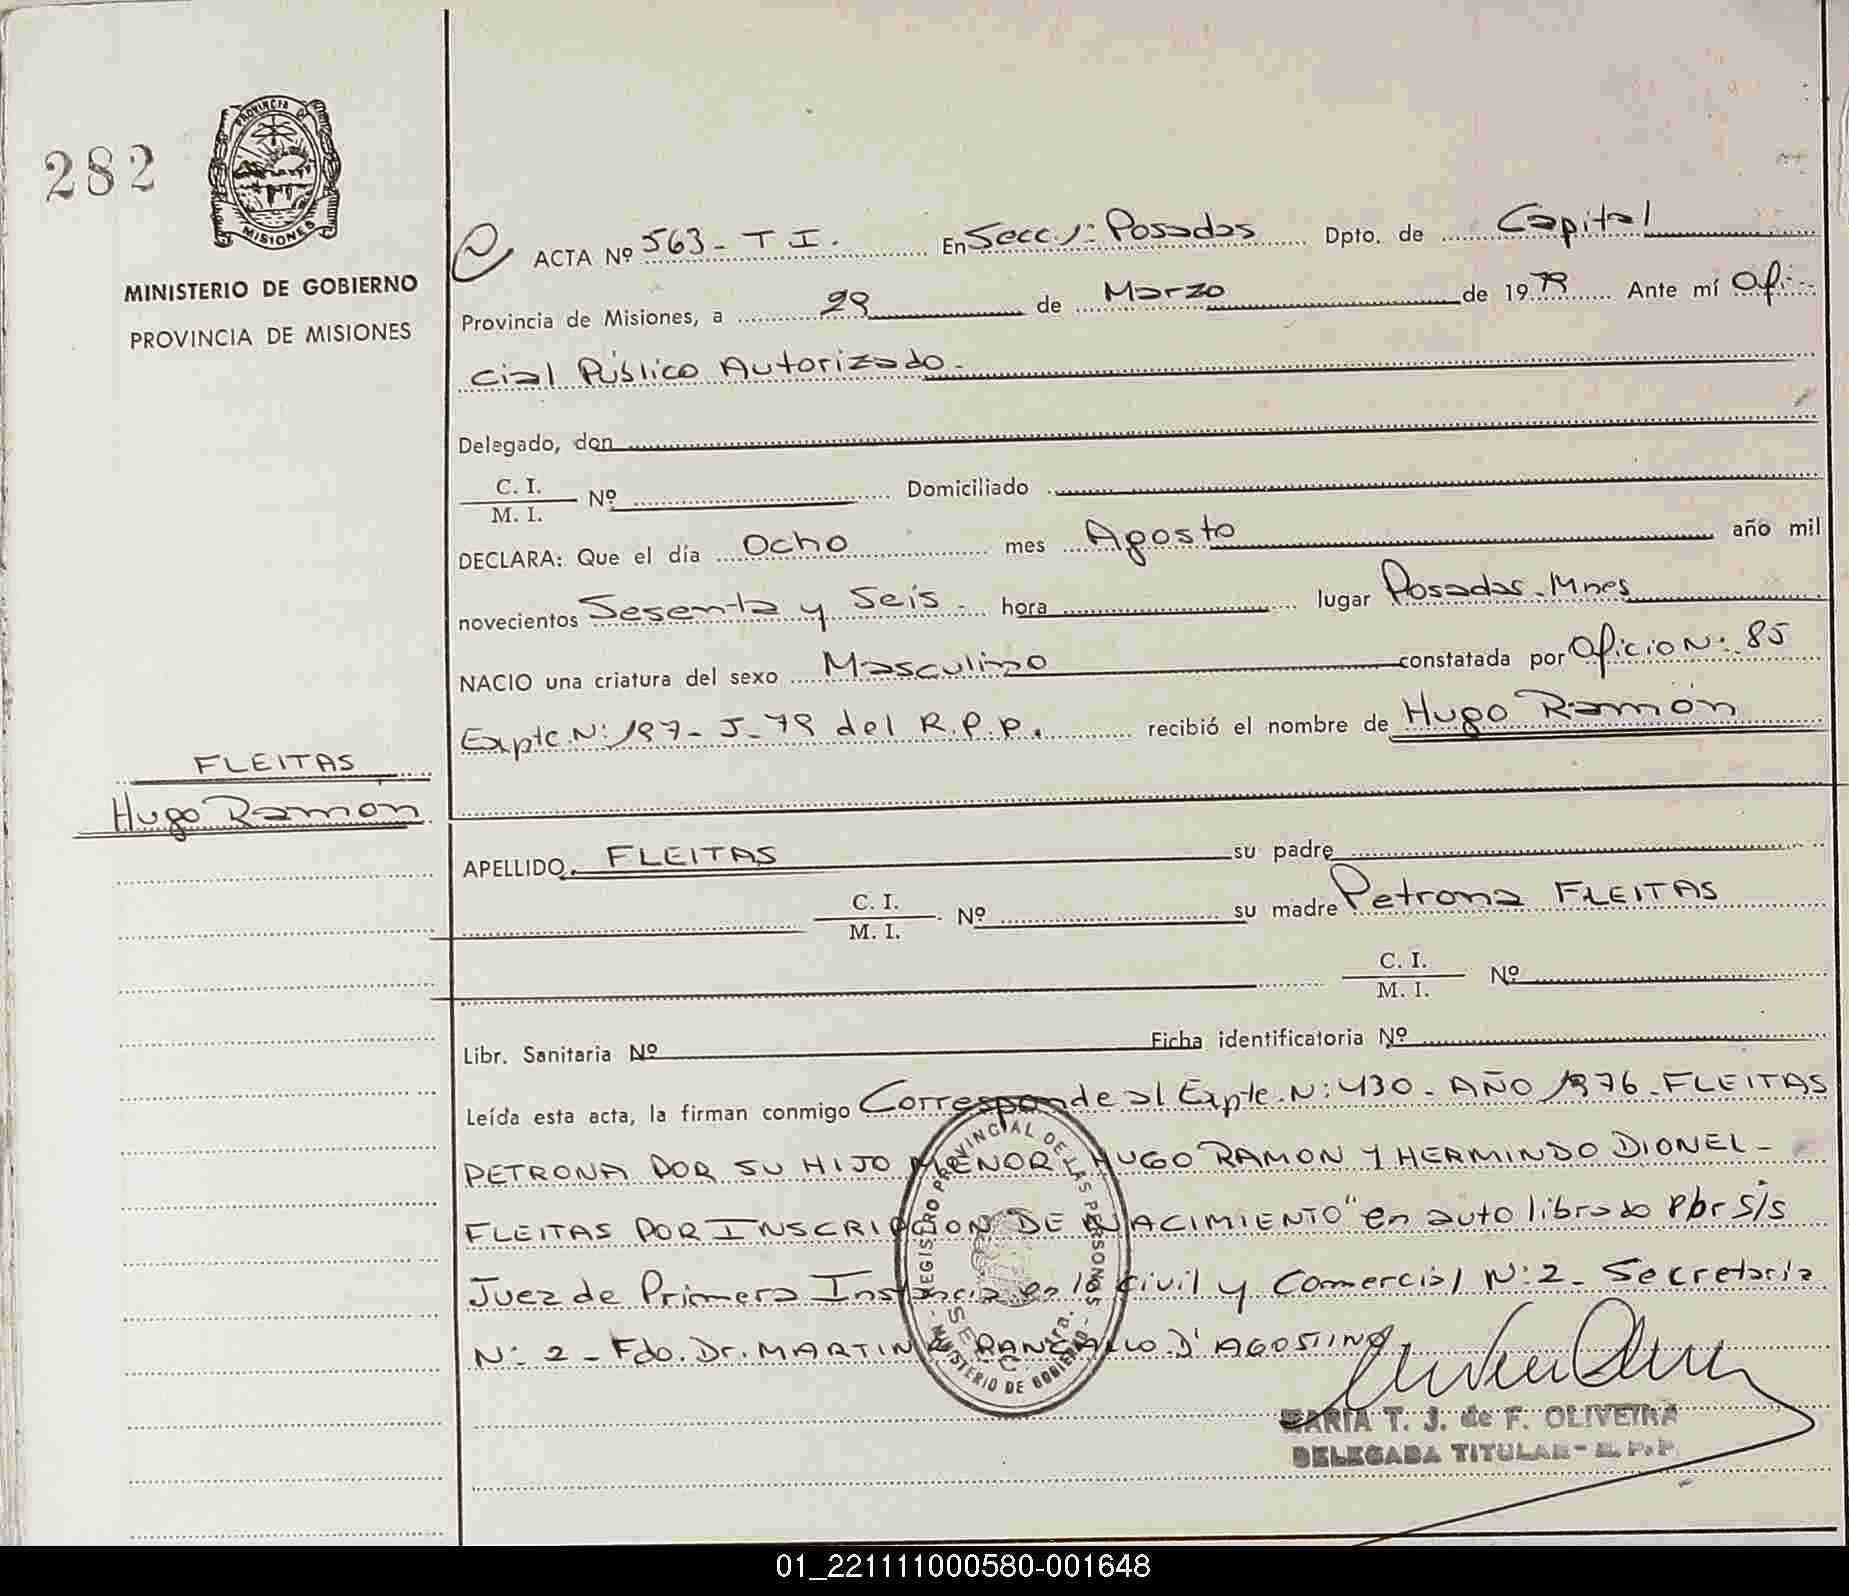 282
PROVINCIA DE
MISIONES
MINISTERIO DE GOBIERNO
PROVINCIA DE MISIONES
ACTA Nº 563 - T I. En Secc. 1: Posadas Dpto. de Capital
Provincia de Misiones, a 29 de Marzo de 1979 Ante mí Ofi-
cial Público Autorizado.
Delegado, don
C. I.
M. I. Nº Domiciliado
DECLARA: Que el día Ocho mes Agosto año mil
novecientos Sesenta y Seis. hora lugar Posadas. Mnes
NACIO una criatura del sexo Masculino constatada por Oficio N: 85
Expte. N: 197 - J - 79 del R.P.P. recibió el nombre de Hugo Ramón
FLEITAS
Hugo Ramón
APELLIDO. FLEITAS su padre
C. I.
M. I. Nº su madre Petrona FLEITAS
C. I.
M. I. Nº
Libr. Sanitaria Nº Ficha identificatoria Nº
Leída esta acta, la firman conmigo Corresponde al Expte. N: 430 - AÑO 1976 - FLEITAS
PETRONA POR SU HIJO MENOR HUGO RAMON Y HERMINDO DIONEL -
FLEITAS POR INSCRIPCION DE NACIMIENTO" en auto librado por S/S
Juez de Primera Instancia en lo Civil y Comercial N: 2 - Secretaría
N: 2 - Fdo. Dr. MARTIN D'AGOSTINO
REGISTRO PROVINCIAL DE LAS PERSONAS
MINISTERIO DE GOBIERNO
MARIA T. J. de F. OLIVEIRA
DELEGADA TITULAR - R. P. P.
01_221111000580-001648